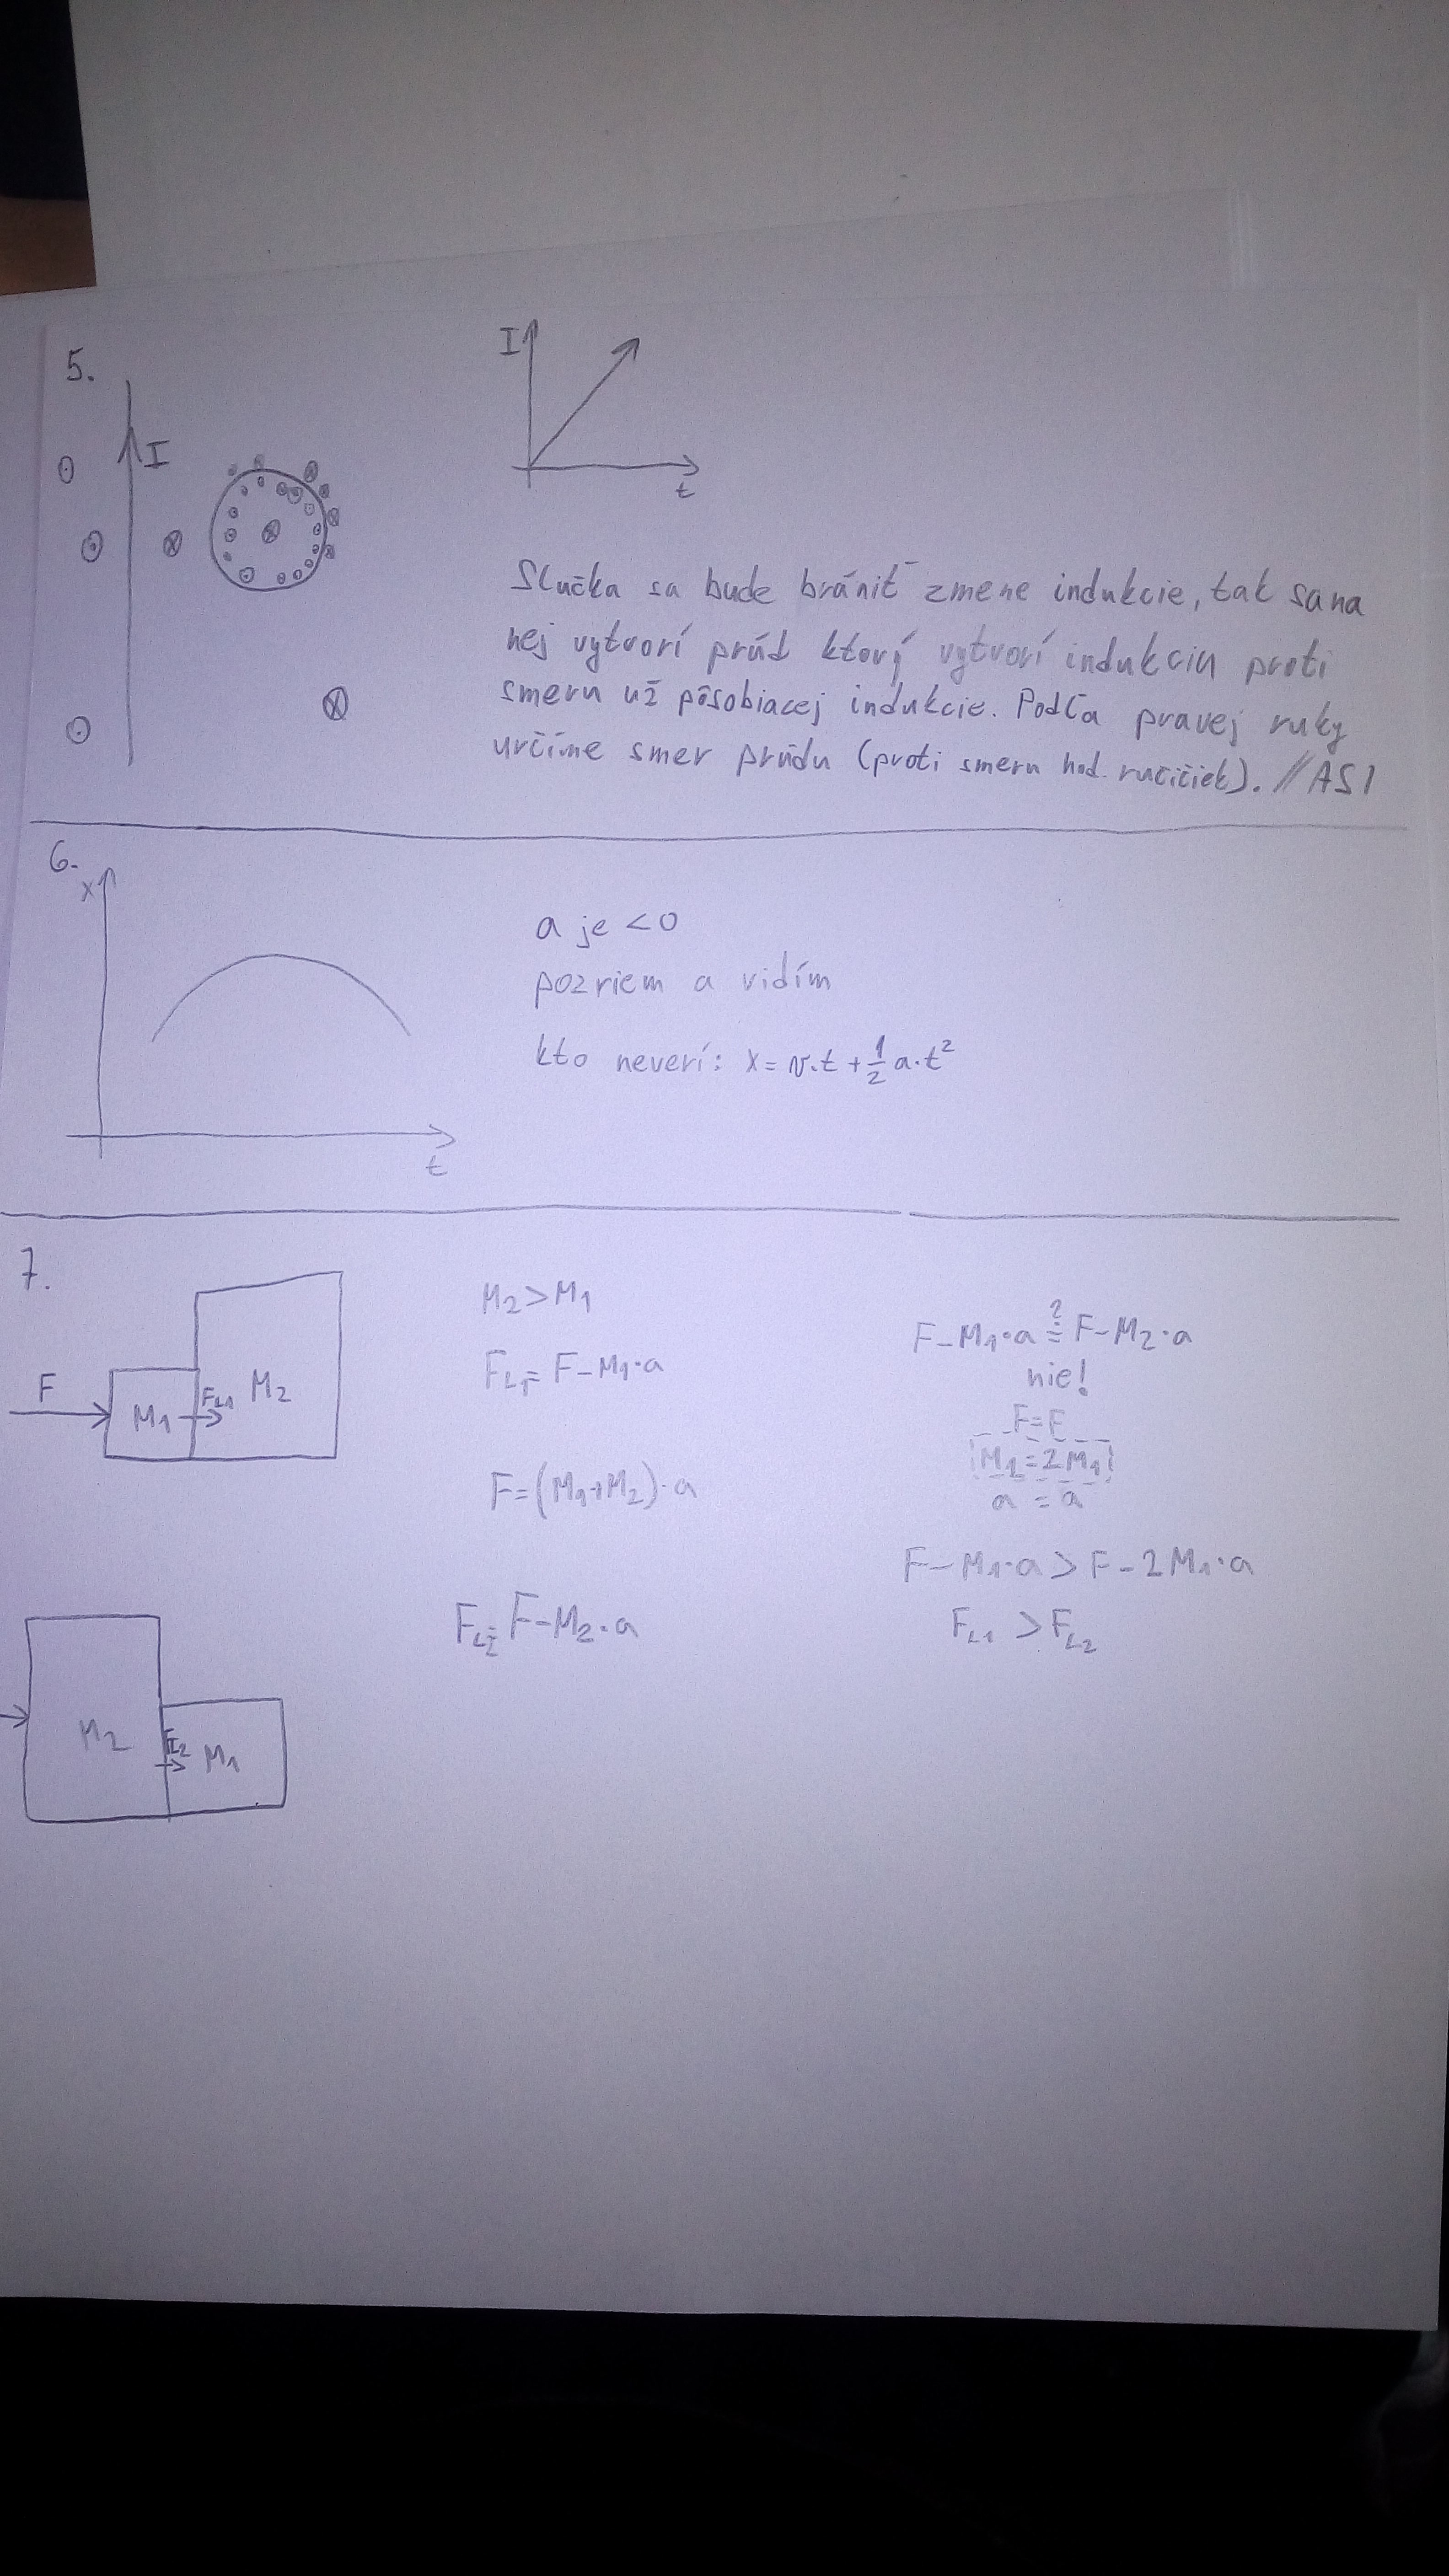 5.
I
I
t
Slučka sa bude brániť zmene indukcie, tak sa na
nej vytvorí prúd ktorý vytvorí indukciu proti
smeru už pôsobiacej indukcie. Podľa pravej ruky
určíme smer prúdu (proti smeru hod. ručičiek). //ASI
6.
x
t
a je <0
pozriem a vidím
kto neverí: x = v.t + 1/2 a.t²
7.
F
M₁
F_L1
M₂
M₂ > M₁
F_L1 = F - M₁·a
F = (M₁+M₂)·a
F_L2 = F - M₂·a
M₂
M₁
F - M₁·a ≟ F - M₂·a
nie!
F = F
M₂ = 2M₁
a = a
F - M₁·a > F - 2M₁·a
F_L1 > F_L2